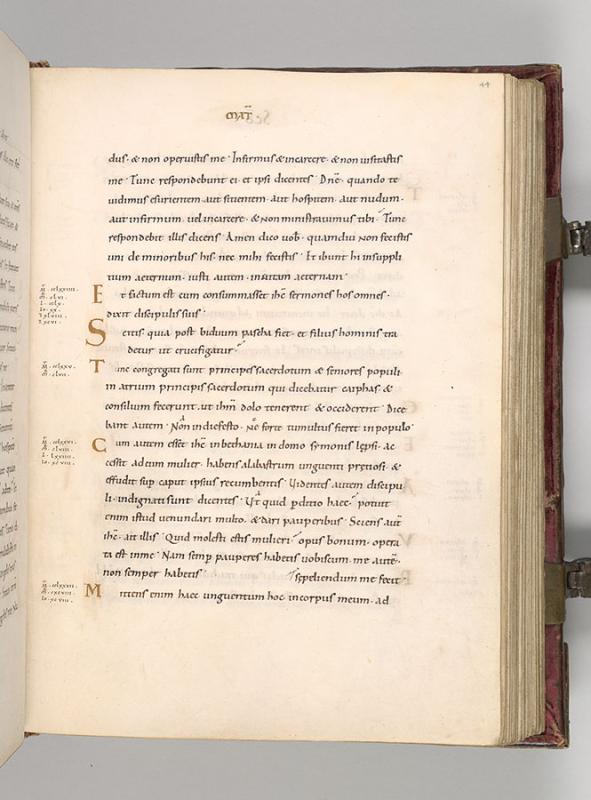 44
MAT
dus · & non operuistis me · Infirmus & incarcere · & non uisitastis
me · Tunc respondebunt ei · et ipsi dicentes · Dñe · quando te
uidimus esurientem · aut sitientem · aut hospitem · aut nudum ·
aut infirmum · uel incarcere · & non ministrauimus tibi · Tunc
respondebit illis dicens · Amen dico uob · quamdiu non fecistis
uni de minoribus his · nec mihi fecistis · Et ibunt hi insuppli
cium aeternum · iusti autem · inuitam aeternam ·
Et factum est cum consummasset ihc sermones hos omnes ·
dixit discipulis suis ·
Scitis quia post biduum pascha fiet · et filius hominis tra
detur ut crucifigatur ·
Tunc congregati sunt principes sacerdotum & seniores populi ·
in atrium principis sacerdotum qui dicebatur caiphas · &
consilium fecerunt · ut ihm dolo tenerent & occiderent · Dice
bant autem · Non indiefesto · Ne forte tumultus fieret inpopulo ·
Cum autem esset ihc inbethania indomo symonis lepsi · ac
cessit adeum mulier · habens alabastrum unguenti pretiosi · &
effudit sup caput ipsius recumbentis · Uidentes autem discipu
li · indignati sunt dicentes · Ut quid pditio haec · potuit
enim istud uenundari multo · & dari pauperibus · Sciens aut
ihc · ait illis · Quid molesti estis mulieri · opus bonum · opera
ta est inme · Nam semp pauperes habetis uobiscum · me aute ·
non semper habetis · sepeliendum me fecit ·
Mittens enim haec unguentum hoc incorpus meum · ad